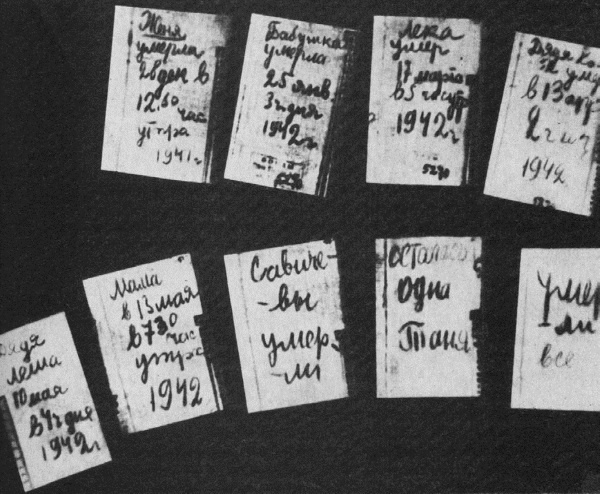 Женя
умерла
28 дек в
12.30
час
утра
1941 г
Бабушка
умерла
25 янв.
3 ч. дня
1942 г.
Лека
умер
17 марта
в 5 час утр
1942 г
5270
Дядя
уме
в 13 апр
2 ч
1942
Дядя
Леша
10 мая
в 4 ч дня
1942 г
Мама
в 13 мая
в 7.30
час
утра
1942
Савиче-
-вы
умер
-ли
Осталас
одна
Таня
Умер
-ли
все